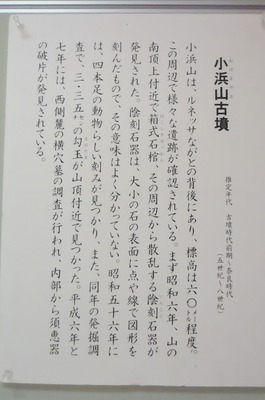 小浜山古墳
推定年代 古墳時代前期~奈良時代
(五世紀~八世紀)
小浜山は、ルネッサながとの背後にあり、標高は六〇㍍程度。
この周辺で様々な遺跡が確認されている。まず昭和六年、山の
南頂上付近で箱式石棺、その周辺から散乱する陰刻石器が
発見された。陰刻石器は、大小の石の表面に点や線で図形を
刻んだもので、その意味はよく分かっていない。昭和五十六年に
は、四本足の動物らしい刻みが見つかり、また、同年の発掘調
査で、三・三五㌢の勾玉が山頂付近で見つかった。平成六年と
七年には、西側麓の横穴墓の調査が行われ、内部から須恵器
の破片が発見されている。